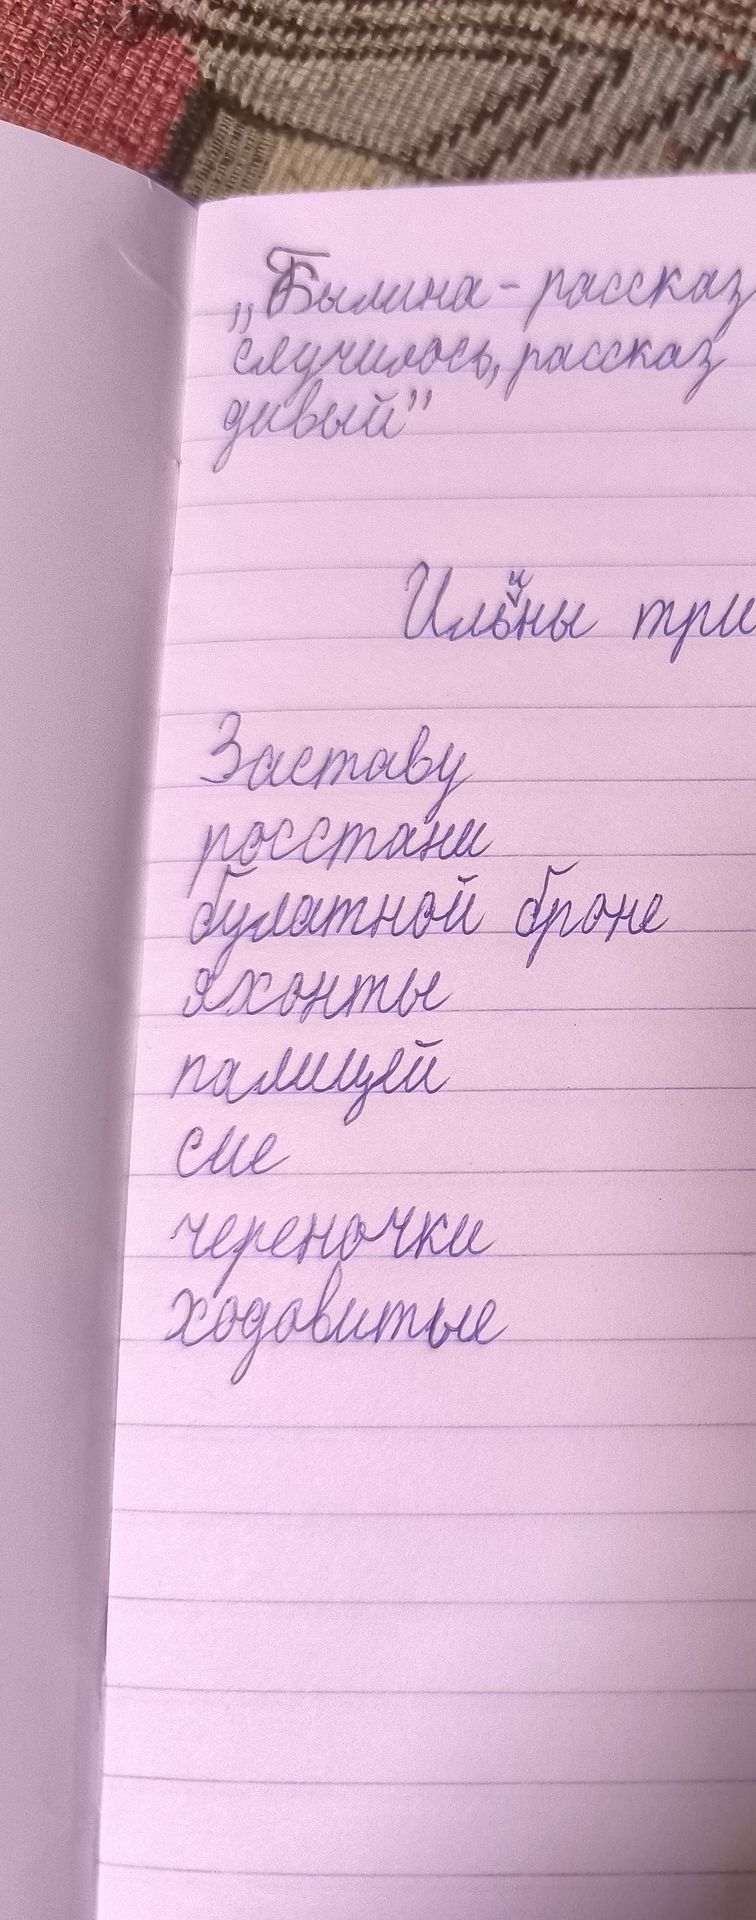 „Былина - рассказ
случилось, рассказ
дивый”
Ильины три
Заставу
росстани
булатной броне
яхонты
палицей
сие
череночки
ходовитые